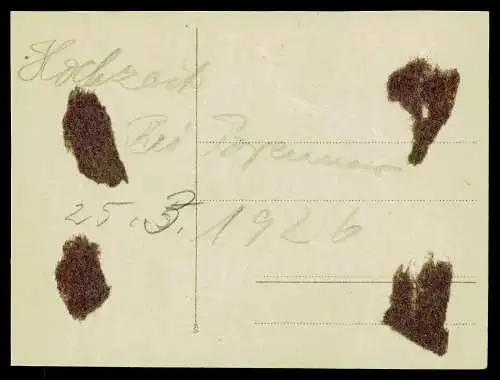 Hochzeit
Bei
25.3.1926